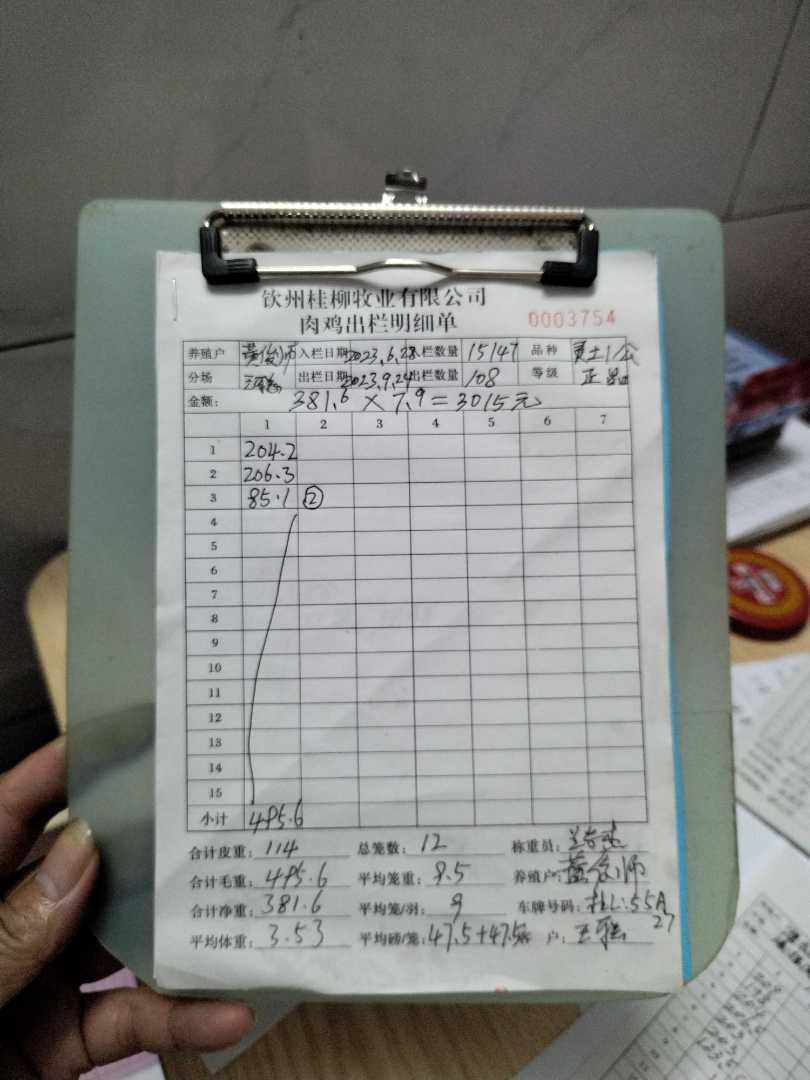 钦州桂柳牧业有限公司
肉鸡出栏明细单 0003754
养殖户 黄俊师 入栏日期 2023.6.28 入栏数量 15147 品种 灵土1公
分场 出栏日期 2023.9.24 出栏数量 108 等级 正品
金额: 381.6 × 7.9 = 3015元
1 2 3 4 5 6 7
1 204.2
2 206.3
3 85.1 ②
4
5
6
7
8
9
10
11
12
13
14
15
小计 495.6
合计皮重: 114 总笼数: 12 称重员:
合计毛重: 495.6 平均笼重: 9.5 养殖户: 黄俊师
合计净重: 381.6 平均笼/羽: 9 车牌号码: 桂L:55A27
平均体重: 3.53 平均磅/笼: 47.5+47.5 户: